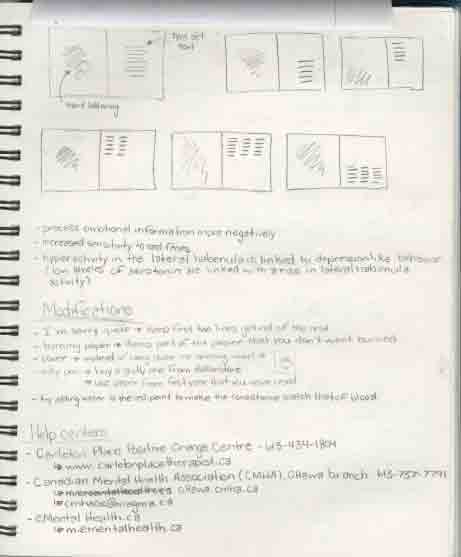 type set
text
hand lettering
- process emotional information more negatively
- increased sensitivity to sad faces
- hyperactivity in the lateral habenula is linked to depression like behavior
(low levels of serotonin are linked with in lateral habenula
activity)
Modifications
- I'm sorry quote → keep first two lines get rid of the rest
- burning paper → damp part of the paper that you don't want burned
- cover → instead of
→ buy a one from dollarstore
→ use from first year that you have read
- try adding water to the red paint to make the consistency match that of blood.
Help centers
- Carleton Place Positive Change Centre - 613-434-1804
↳ www.carletonplacetherapist.ca
- Canadian Mental Health Association (CMHA), Ottawa branch 613-737-7791
↳ ottawa.cmha.ca
- eMental Health.ca
↳ m.ementalhealth.ca